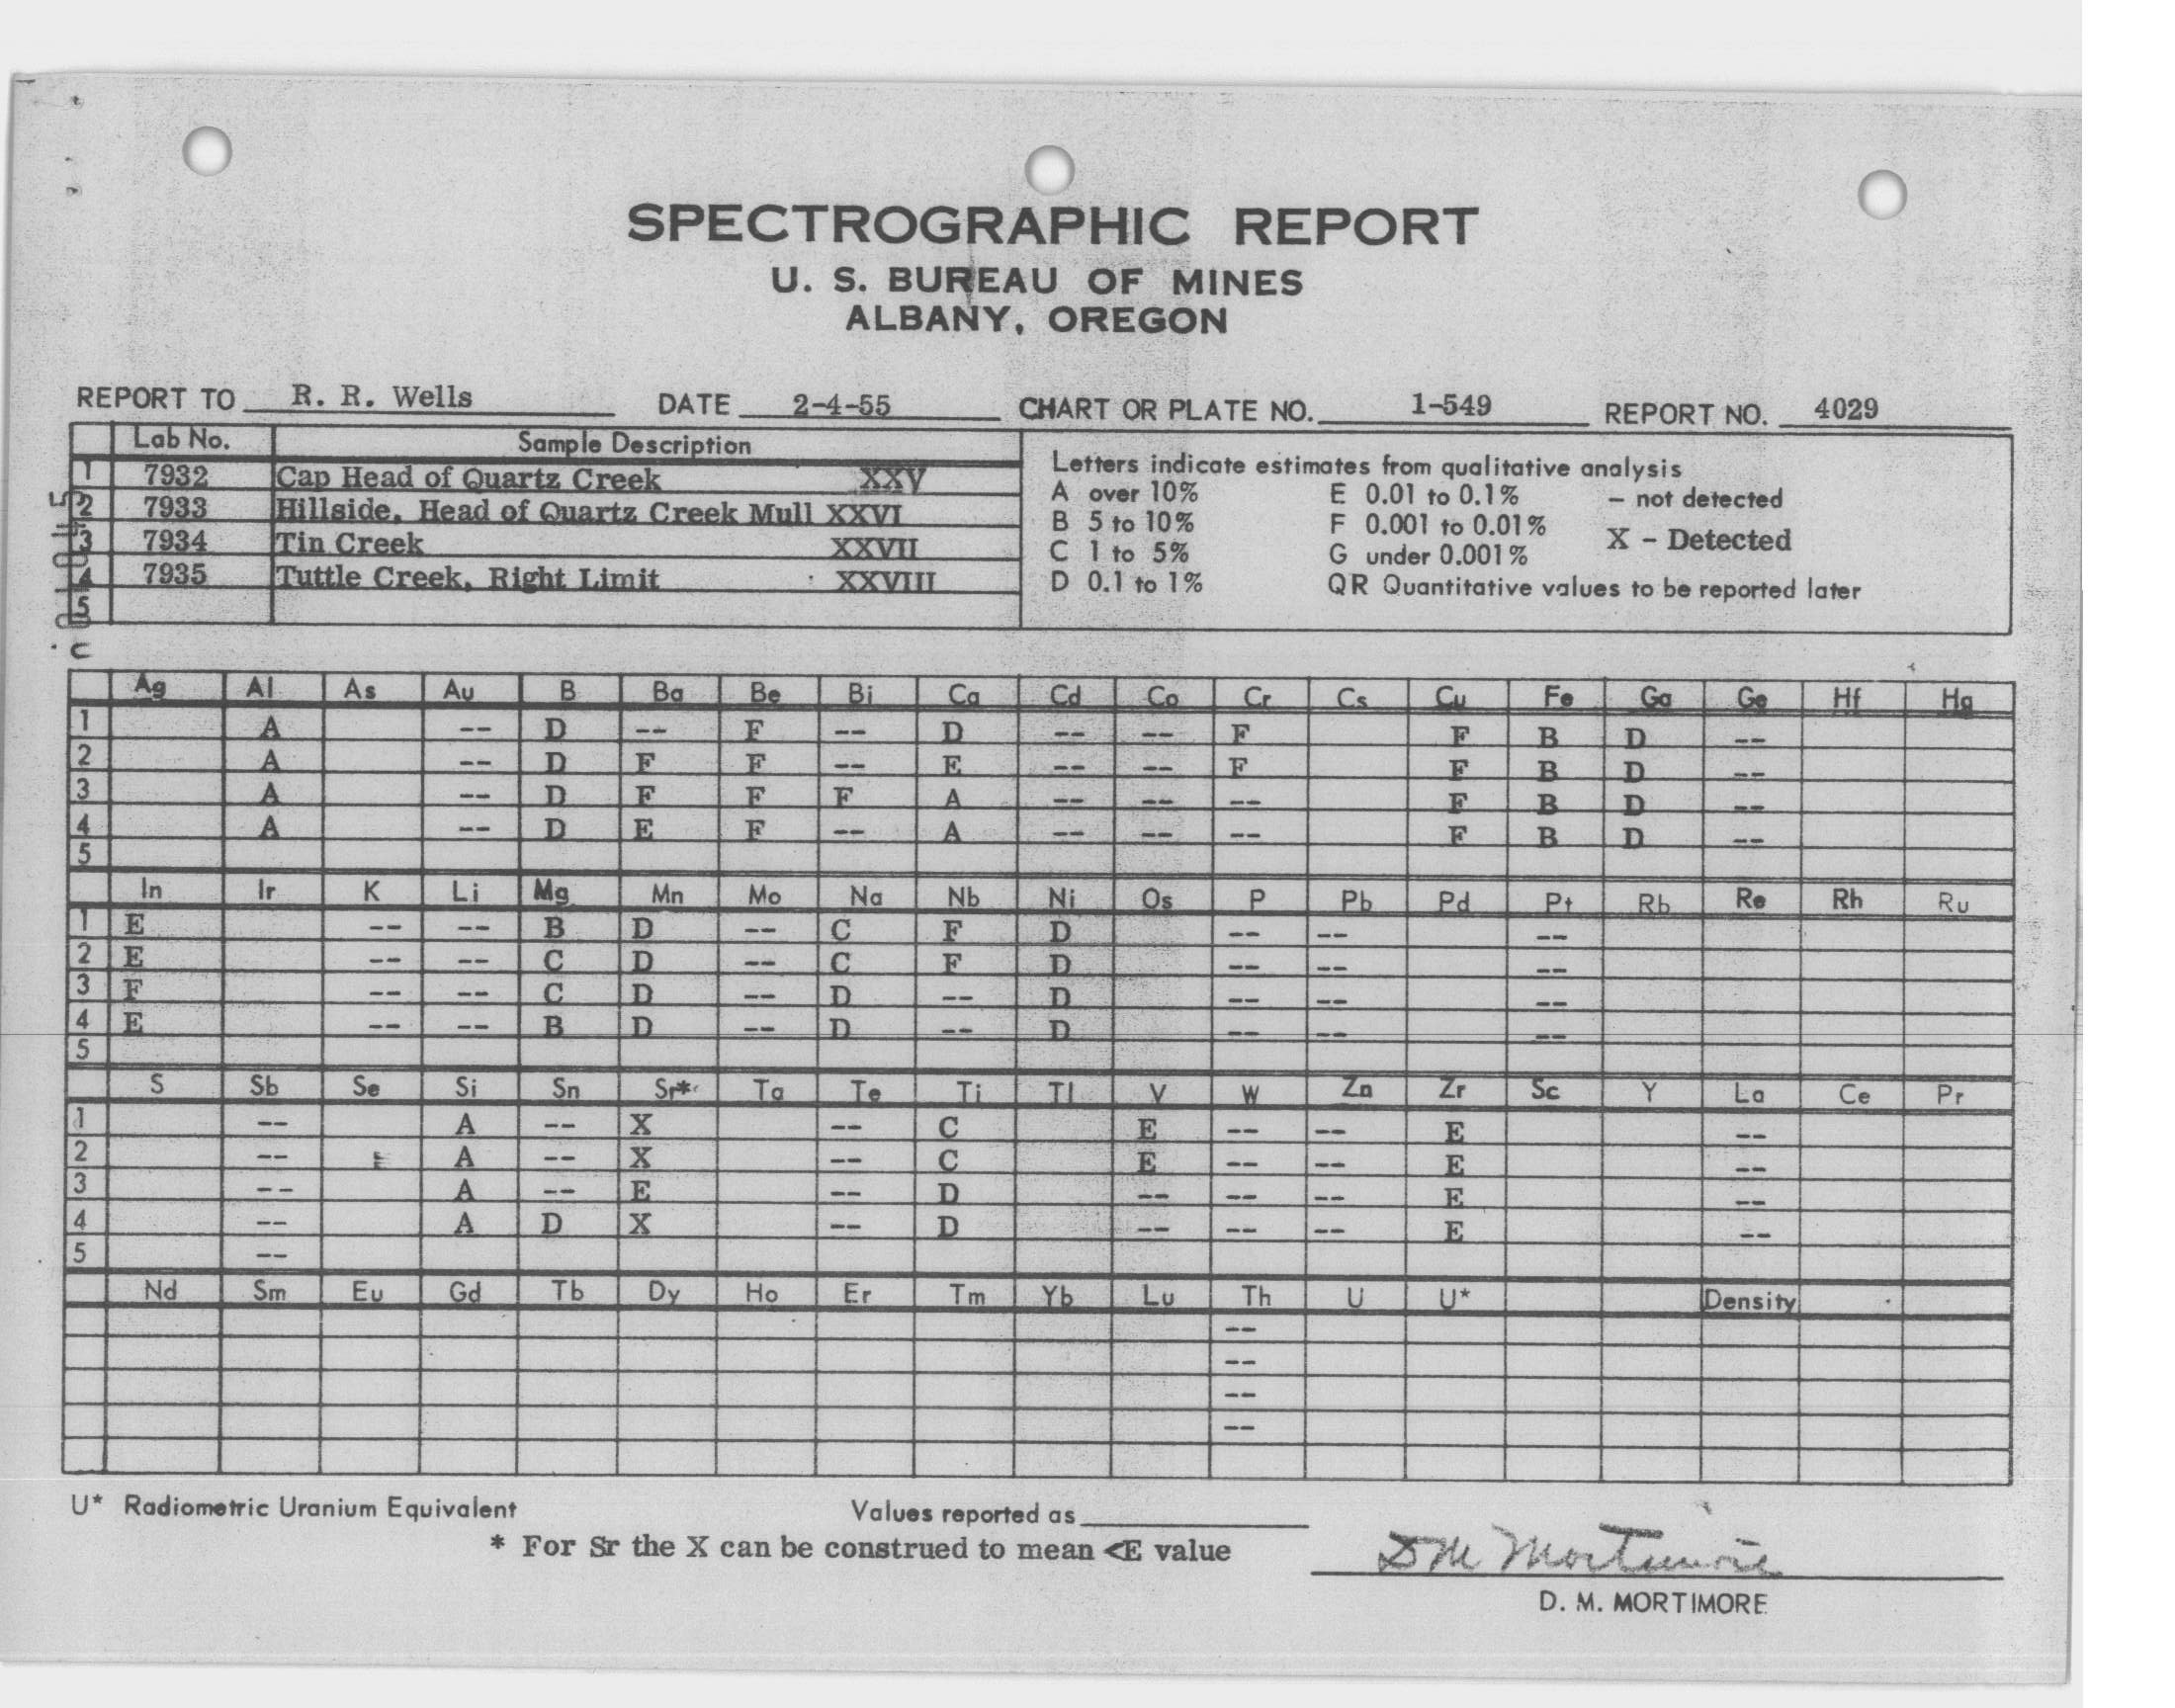 SPECTROGRAPHIC REPORT
U. S. BUREAU OF MINES
ALBANY, OREGON
REPORT TO R. R. Wells DATE 2-4-55 CHART OR PLATE NO. 1-549 REPORT NO. 4029
Lab No. Sample Description
1 7932 Cap Head of Quartz Creek XXV
2 7933 Hillside, Head of Quartz Creek Mull XXVI
3 7934 Tin Creek XXVII
4 7935 Tuttle Creek, Right Limit XXVIII
5
Letters indicate estimates from qualitative analysis
A over 10% E 0.01 to 0.1% - not detected
B 5 to 10% F 0.001 to 0.01% X - Detected
C 1 to 5% G under 0.001%
D 0.1 to 1% QR Quantitative values to be reported later
Ag Al As Au B Ba Be Bi Ca Cd Co Cr Cs Cu Fe Ga Ge Hf Hg
1 A -- D -- F -- D -- -- F F B D --
2 A -- D F F -- E -- -- F F B D --
3 A -- D F F F A -- -- -- F B D --
4 A -- D E F -- A -- -- -- F B D --
5
In Ir K Li Mg Mn Mo Na Nb Ni Os P Pb Pd Pt Rb Re Rh Ru
1 E -- -- B D -- C F D -- -- --
2 E -- -- C D -- C F D -- -- --
3 F -- -- C D -- D -- D -- -- --
4 E -- -- B D -- D -- D -- -- --
5
S Sb Se Si Sn Sr* Ta Te Ti Tl V W Zn Zr Sc Y La Ce Pr
1 -- A -- X -- C E -- -- E --
2 -- A -- X -- C E -- -- E --
3 -- A -- E -- D -- -- -- E --
4 -- A D X -- D -- -- -- E --
5 --
Nd Sm Eu Gd Tb Dy Ho Er Tm Yb Lu Th U U* Density
--
--
--
--
U* Radiometric Uranium Equivalent Values reported as
* For Sr the X can be construed to mean <E value
DM Mortimore
D. M. MORTIMORE